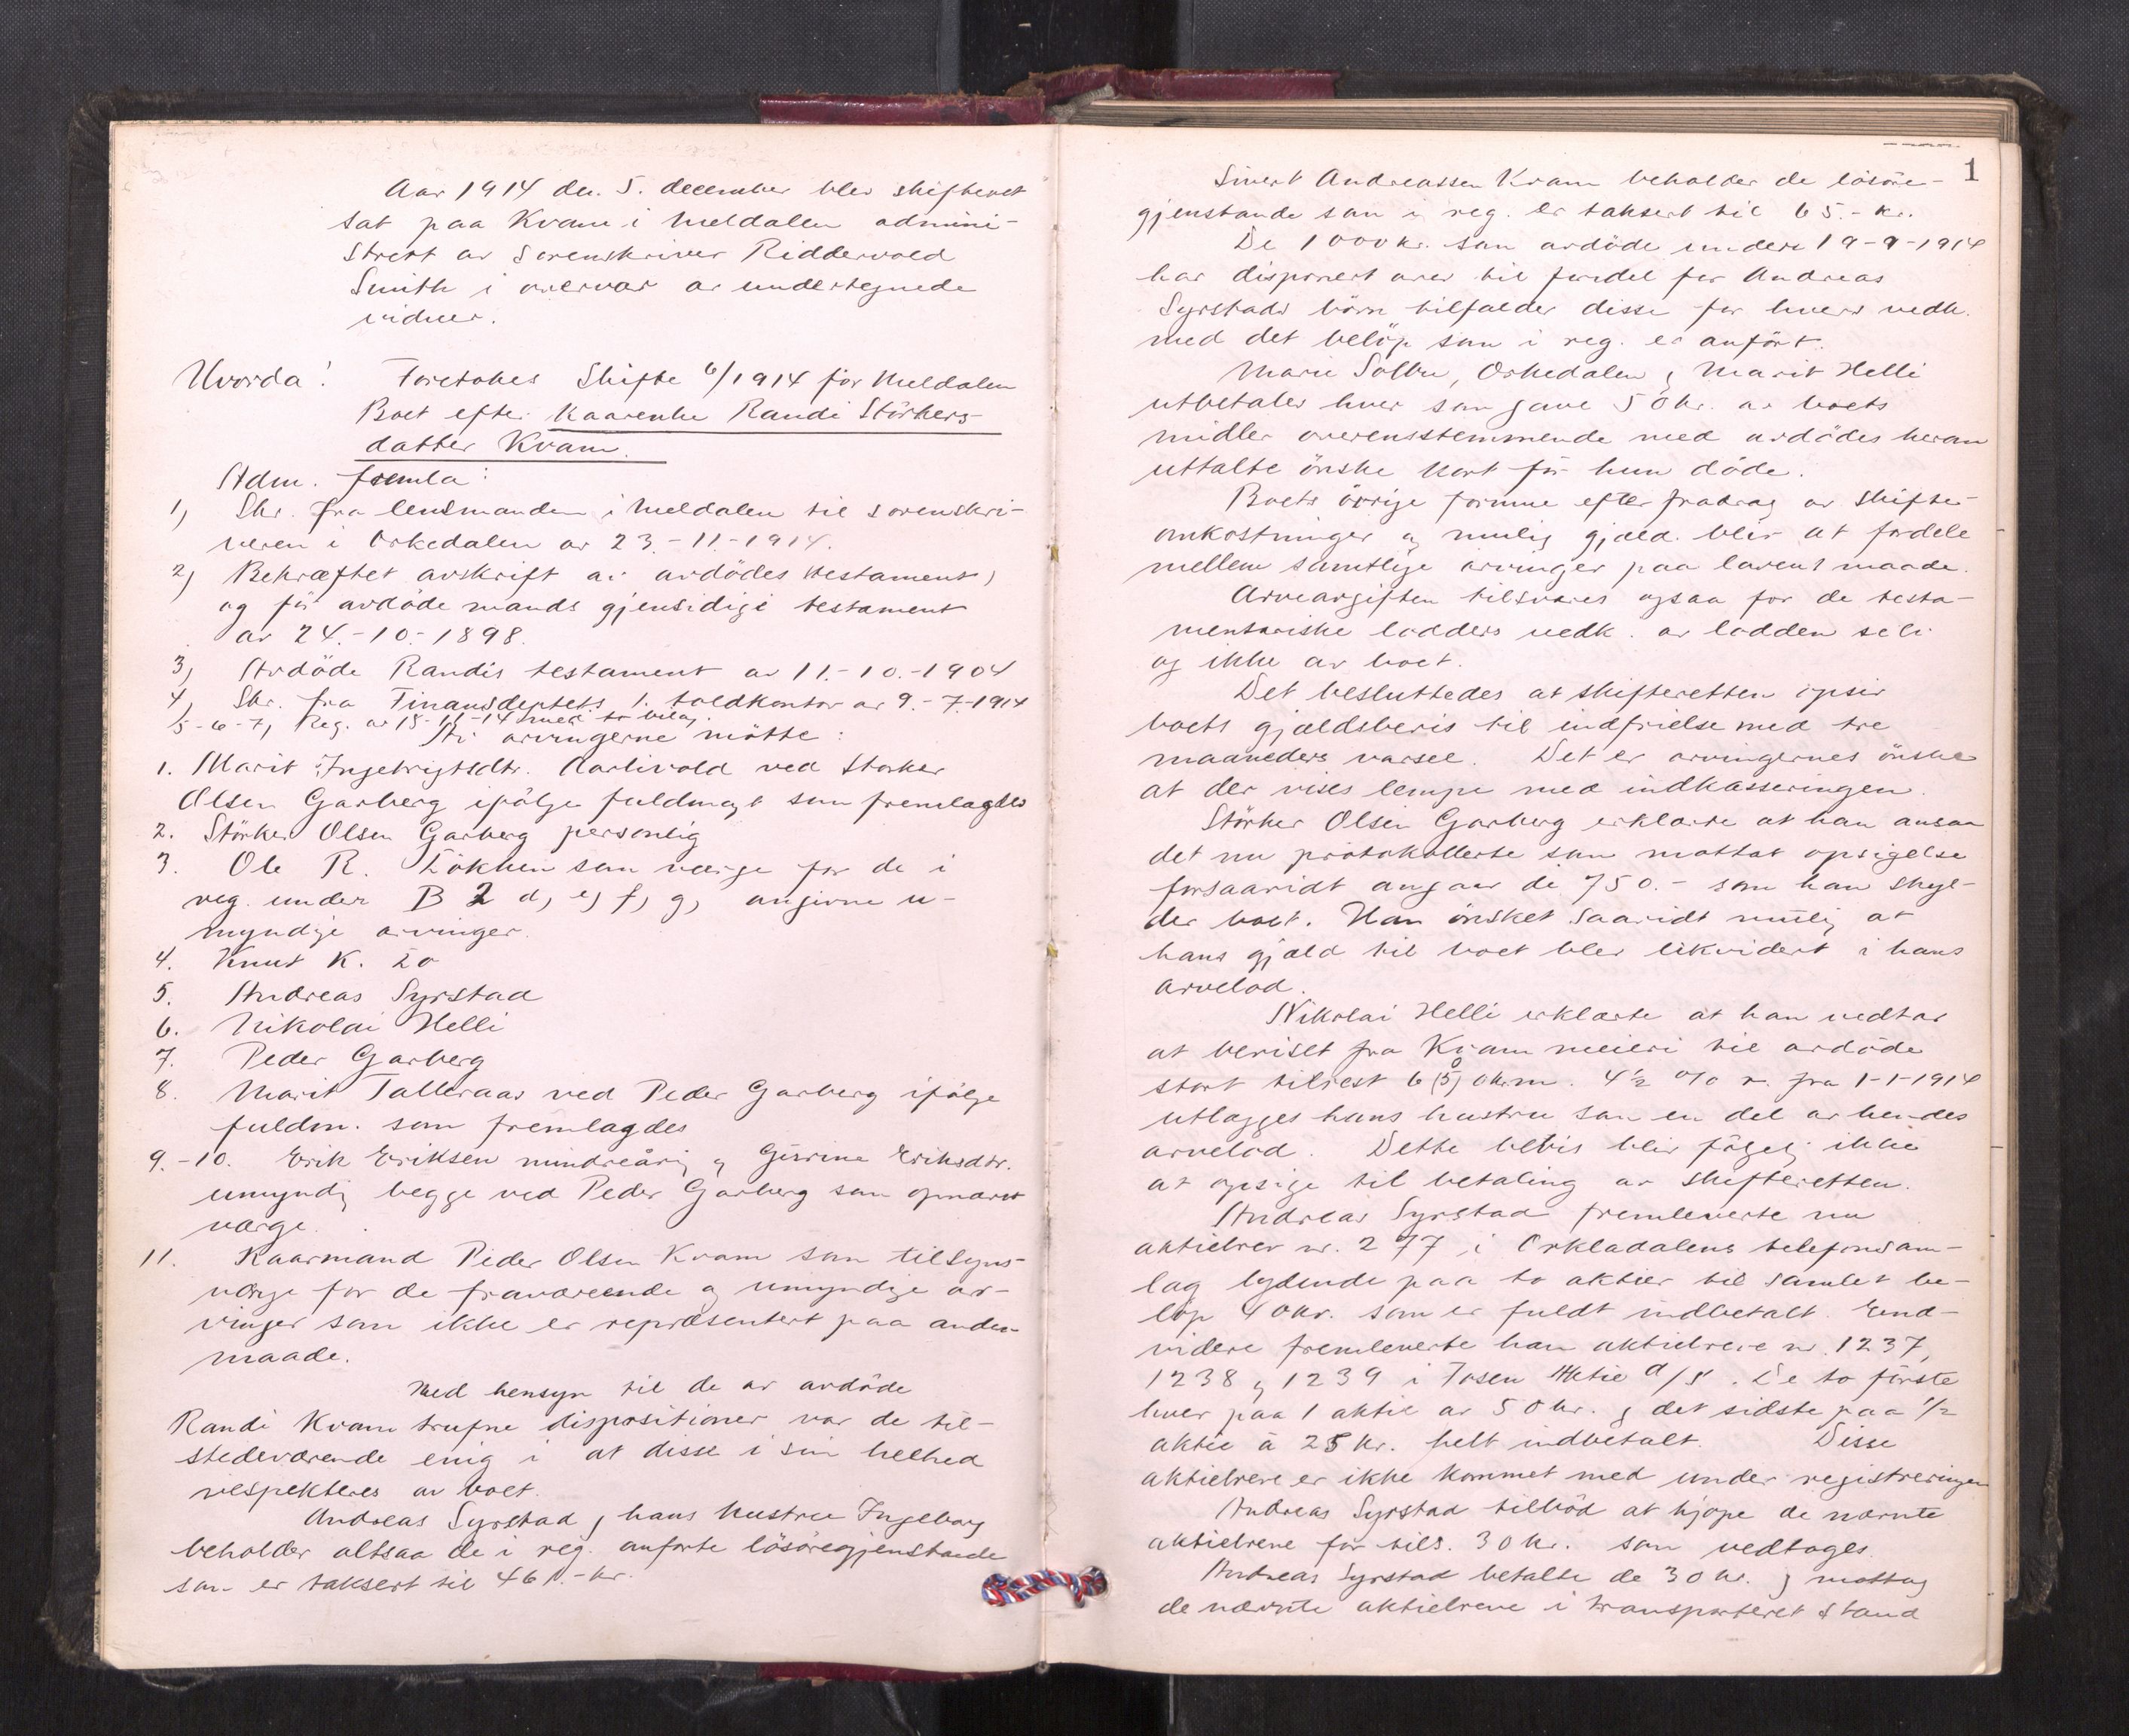 Aar 1914 den 5. december blev skifteret
sat paa Kvam i Meldalen admini-
strert av Sorenskriver Riddervold
Smith i overvær av undertegnede
vidner.
Hvorda! Foretokes Skifte 6/1914 for Meldalen
Boet efter kaarenke Randi Störkers-
datter Kvam.
Adm. fremla:
1) Skr. fra lensmanden i Meldalen til sorenskri-
veren i Orkedalen av 23.-11.-1914.
2) Bekræftet avskrift av avdödes testament,
og för avdöde mands gjensidige testament
av 24.-10.-1898.
3) Avdöde Randis testament av 11.-10.-1904
4) Skr. fra Finansdeptets 1. toldkontor av 9.-7.-1914
5-6-7) Reg. av 18-11-14 med to bilag.
Av arvingerne mötte:
1. Marit Ingebrigtsdtr. ved Størker
Olsen Garberg ifölge fuldmagt som fremlagdes
2. Störker Olsen Garberg personlig
3. Ole R. Lökken som værge for de i
reg. under B 2 d, e, f, g, angivne u-
myndige arvinger.
4. Knut K. Lo
5. Andreas Syrstad
6. Nikolai Helli
7. Peder Garberg
8. Marit Talleraas ved Peder Garberg ifölge
fuldm. som fremlagdes
9.-10. Erik Eriksen mindreårig og Gurine Eriksdtr.
umyndig begge ved Peder Garberg som opnævnt
værge.
11. Kaarmand Peder Olsen Kvam som tilsyns-
værge for de fraværende og umyndige ar-
vinger som ikke er repræsentert paa anden
maade.
Med hensyn til de av avdöde
Randi Kvam trufne dispositioner var de til-
stedeværende enig i at disse i sin helhed
respekteres av boet.
Andreas Syrstad og hans hustru Ingeborg
beholder altsaa de i reg. anförte lösöregjenstande
som er taksert til 461.- kr.
1
Sivert Andreassen Kvam beholder de lösöre-
gjenstande som i reg. er taksert til 65.- kr.
De 1000 kr. som avdöde under 19-9-1914
har disponert over til fordel for Andreas
Syrstads börn tilfalder disse for hvers vedk.
med det belöp som i reg. er anfört.
Marie Solbu, Orkedalen og Marit Helli
utbetales hver som gave 50 kr. av boets
midler overensstemmende med avdödes herom
uttalte önske kort för hun döde.
Boets övrige formue efter fradrag av skifte-
omkostninger og mulig gjæld blir at fordele
mellem samtlige arvinger paa lovens maade.
Arveavgiften tilsvares ogsaa for de testa-
mentariske lodders vedk. av lodden selv
og ikke av boet.
Det besluttedes at skifteretten opsir
boets gjældsbevis til indfrielse med tre
maaneders varsel. Det er arvingernes önske
at der vises lempe med indkasseringen.
Störker Olsen Garberg erklærte at han ansaa
det nu protokollerte som mottat opsigelse
forsaavidt angaar de 750.- som han skyl-
der boet. Han önsket saavidt mulig at
hans gjæld til boet blev likvidert i hans
arvelod.
Nikolai Helli erklærte at han vedtar
at beviset fra Kvam meieri til avdöde
stort tilrest 6(5)0 kr m. 4½ % r. fra 1-1-1914
utlægges hans hustru som en del av hendes
arvelod. Dette bevis blir fölgelig ikke
at opsige til betaling av skifteretten.
Andreas Syrstad fremleverte nu
aktiebrev nr. 277 i Orkladalens telefonsam-
lag lydende paa to aktier til samlet be-
löp 40 kr. som er fuldt indbetalt. End-
videre fremleverte han aktiebreve nr. 1237,
1238 og 1239 i Fosen Aktie a/s. De to förste
hver paa 1 aktie av 50 kr. og det sidste paa ½
aktie à 25 kr. helt indbetalt. Disse
aktiebreve er ikke kommet med under registreringen
Andreas Syrstad tilböd at kjöpe de nævnte
aktiebreve for tils. 30 kr. som vedtoges.
Andreas Syrstad betalte de 30 kr. og mottog
de nævnte aktiebreve i transporteret stand